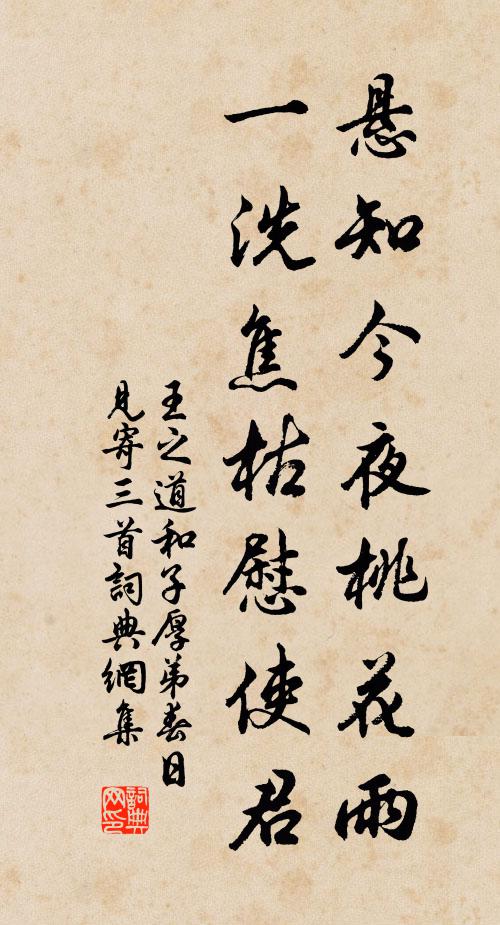 悬知今夜桃花雨
一洗焦枯慰使君
王之道和子厚弟春日
见寄三首詞典網集
詞典
网印